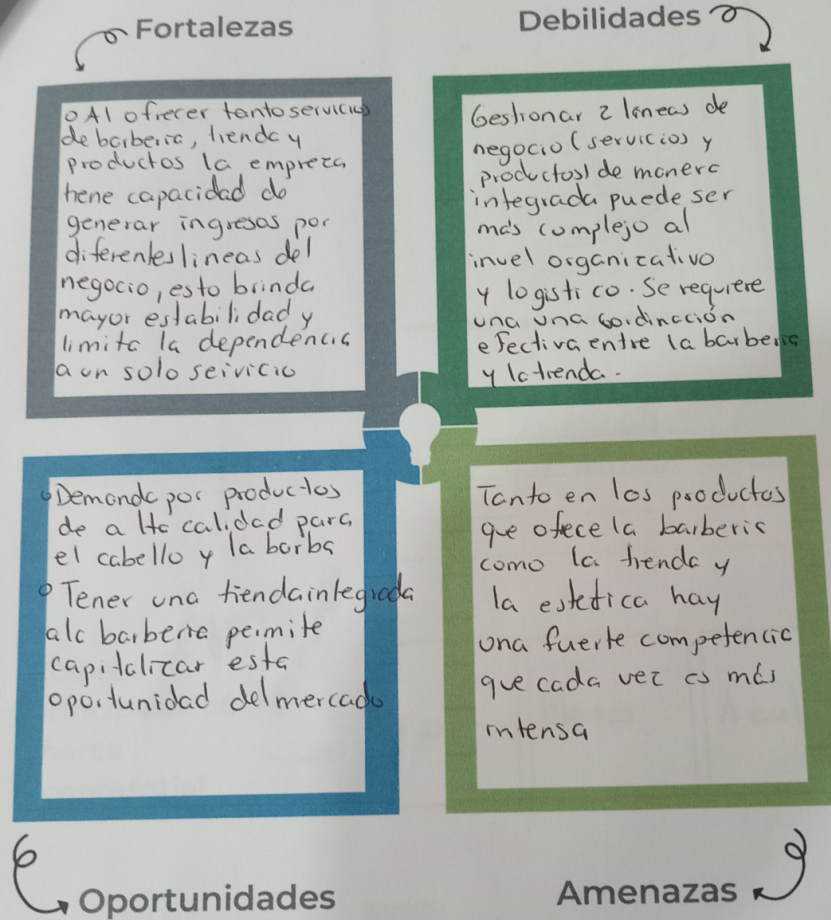 Fortalezas
o Al ofrecer tanto servicios
de barberia, tienda y
productos la empreza
tiene capacidad de
generar ingresos por
diferentes lineas del
negocio, esto brinda
mayor estabilidad y
limita la dependencia
a un solo servicio
Debilidades
Gestionar 2 líneas de
negocio (servicios y
productos) de manera
integrada puede ser
más complejo al
invel organizativo
y logistico. Se requiere
una una coidinación
efectiva entre la barberia
y la tienda.
o Demanda por productos
de alta calidad para
el cabello y la barba
o Tener una tienda integrada
ala barberia permite
capitalizar esta
oportunidad del mercado
Oportunidades
Tanto en los productos
que ofece la barberia
como la tienda y
la estetica hay
una fuerte competencia
que cada vez es más
intensa
Amenazas